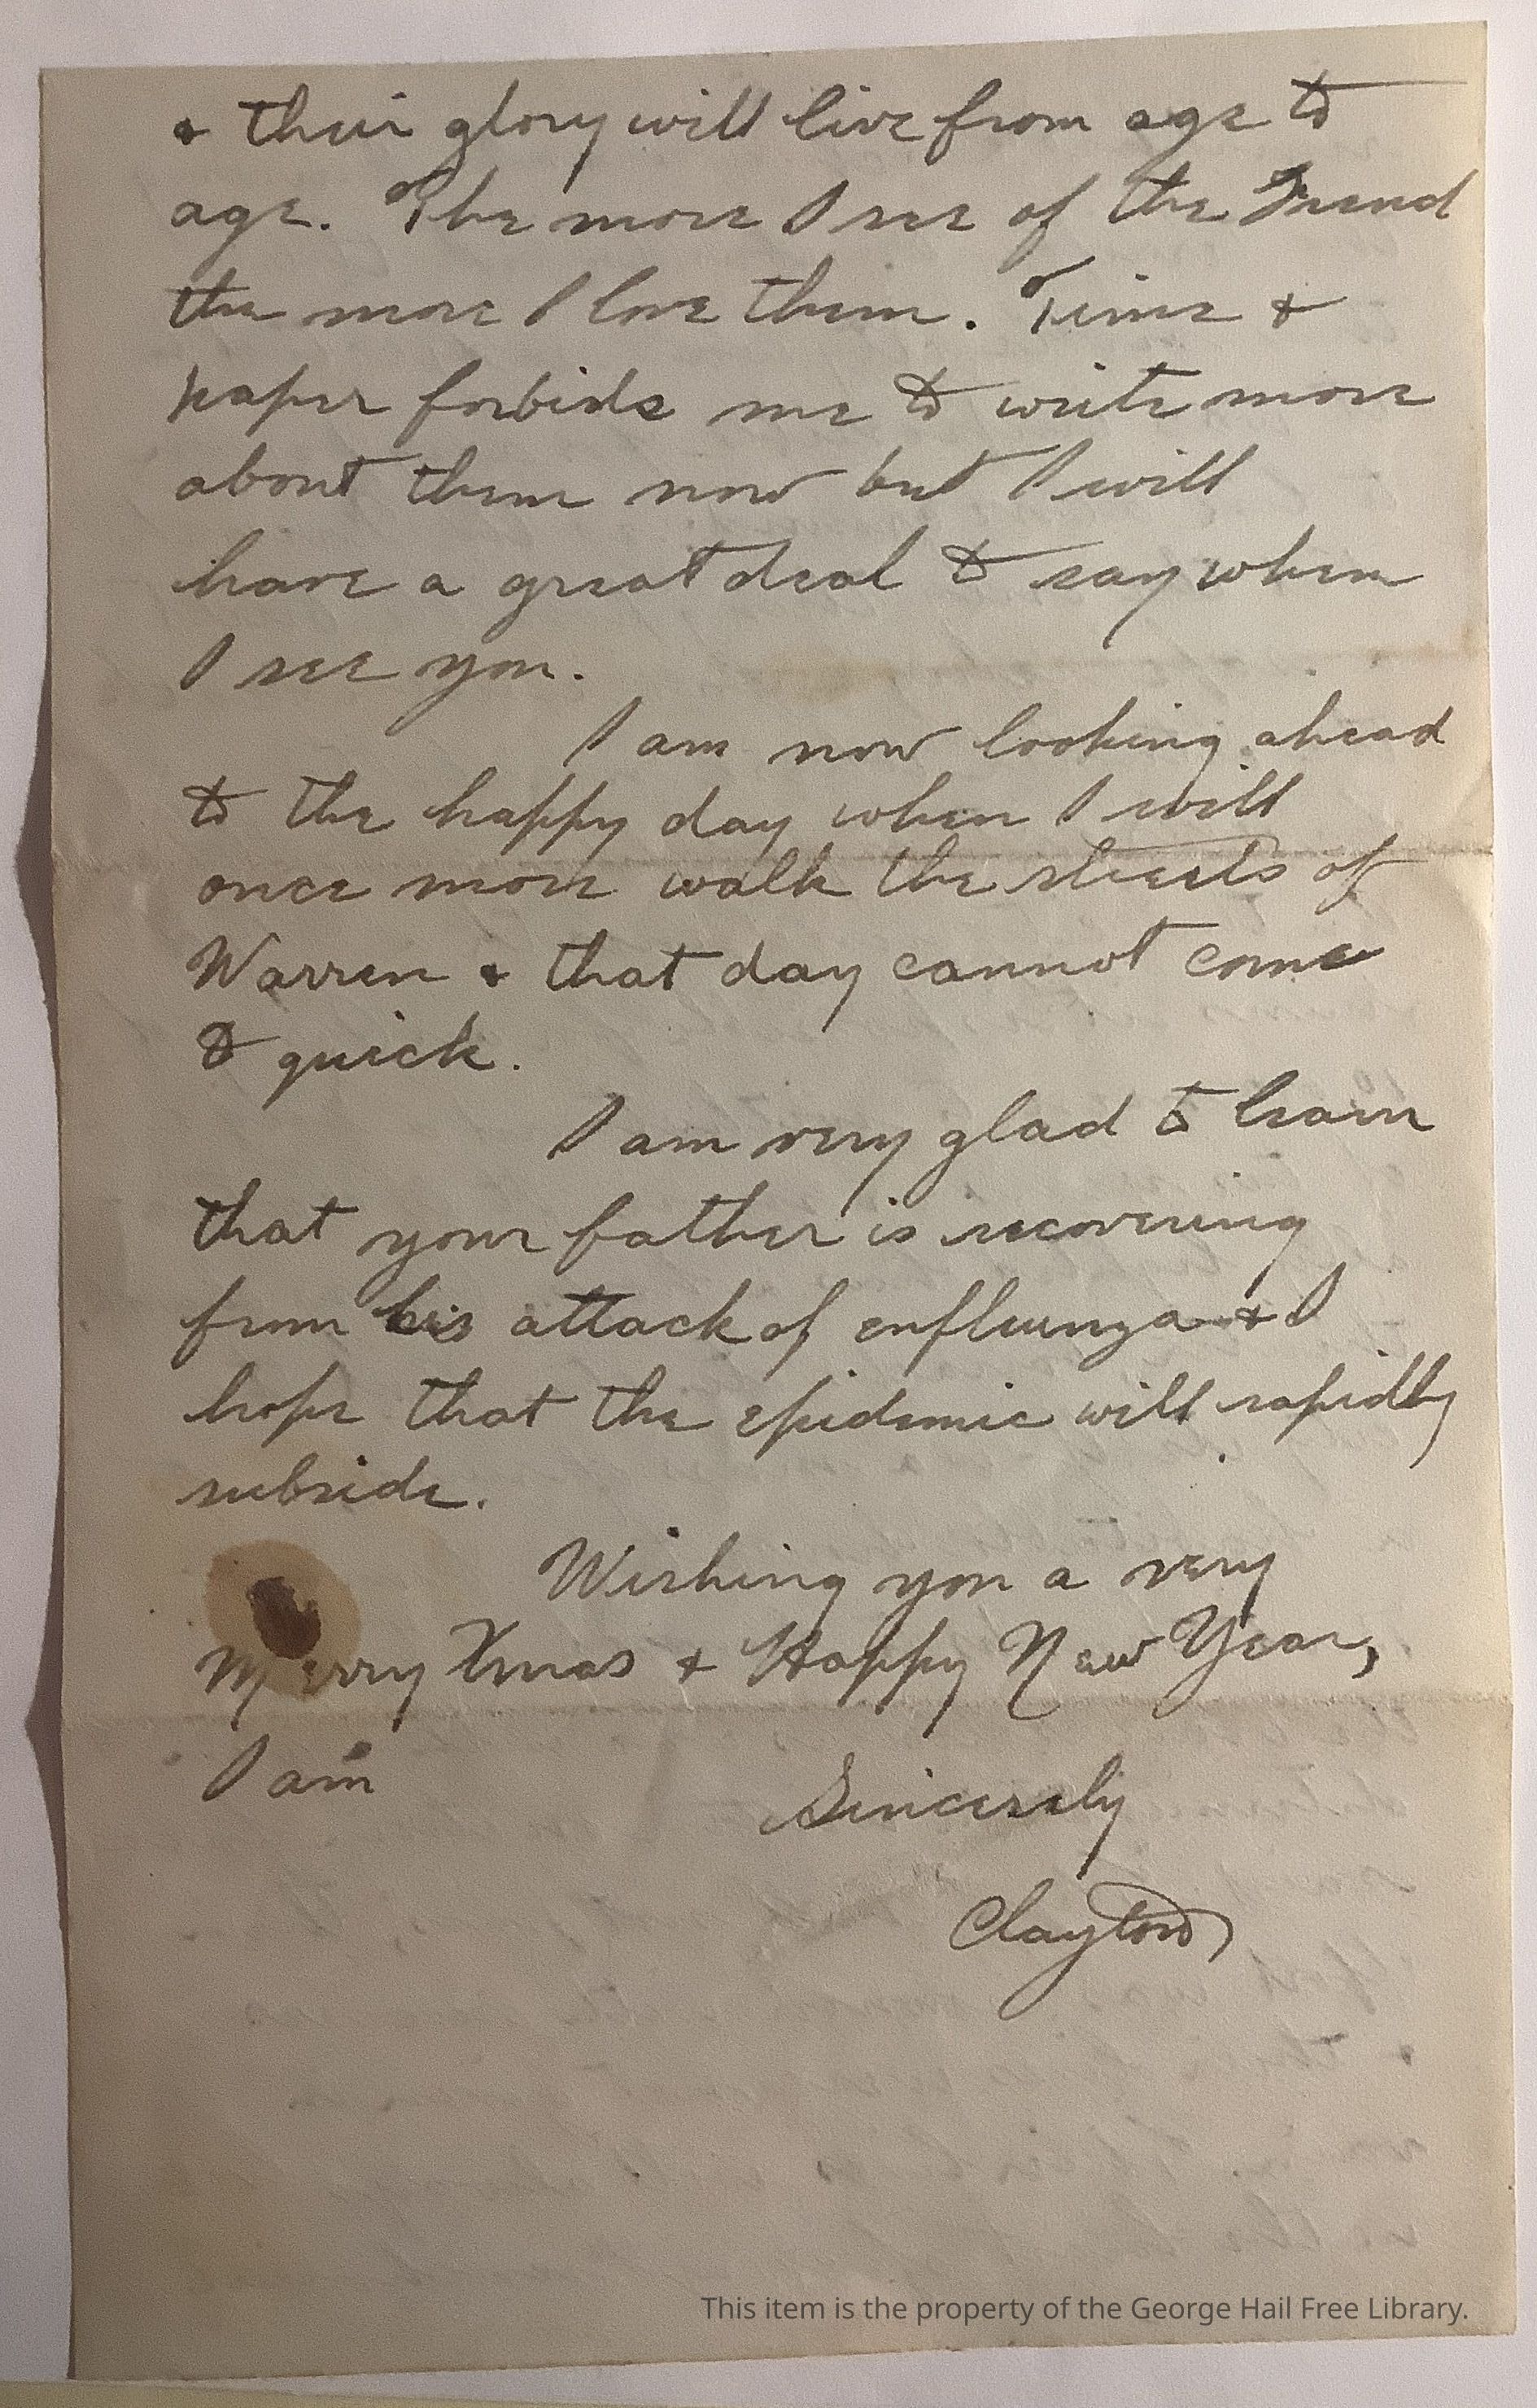 & their glory will live from age to
age. The more I see of the Friend
the more I love them. Time &
paper forbids me to write more
about them now but I will
have a great deal to say when
I see you.
I am now looking ahead
to the happy day when I will
once more walk the streets of
Warren & that day cannot come
to quick.
I am very glad to learn
that your father is recovering
from his attack of enfluenza & I
hope that the epidemic will rapidly
subside.
Wishing you a very
Merry Xmas & Happy New Year,
I am
Sincerely
Clayton
This item is the property of the George Hail Free Library.